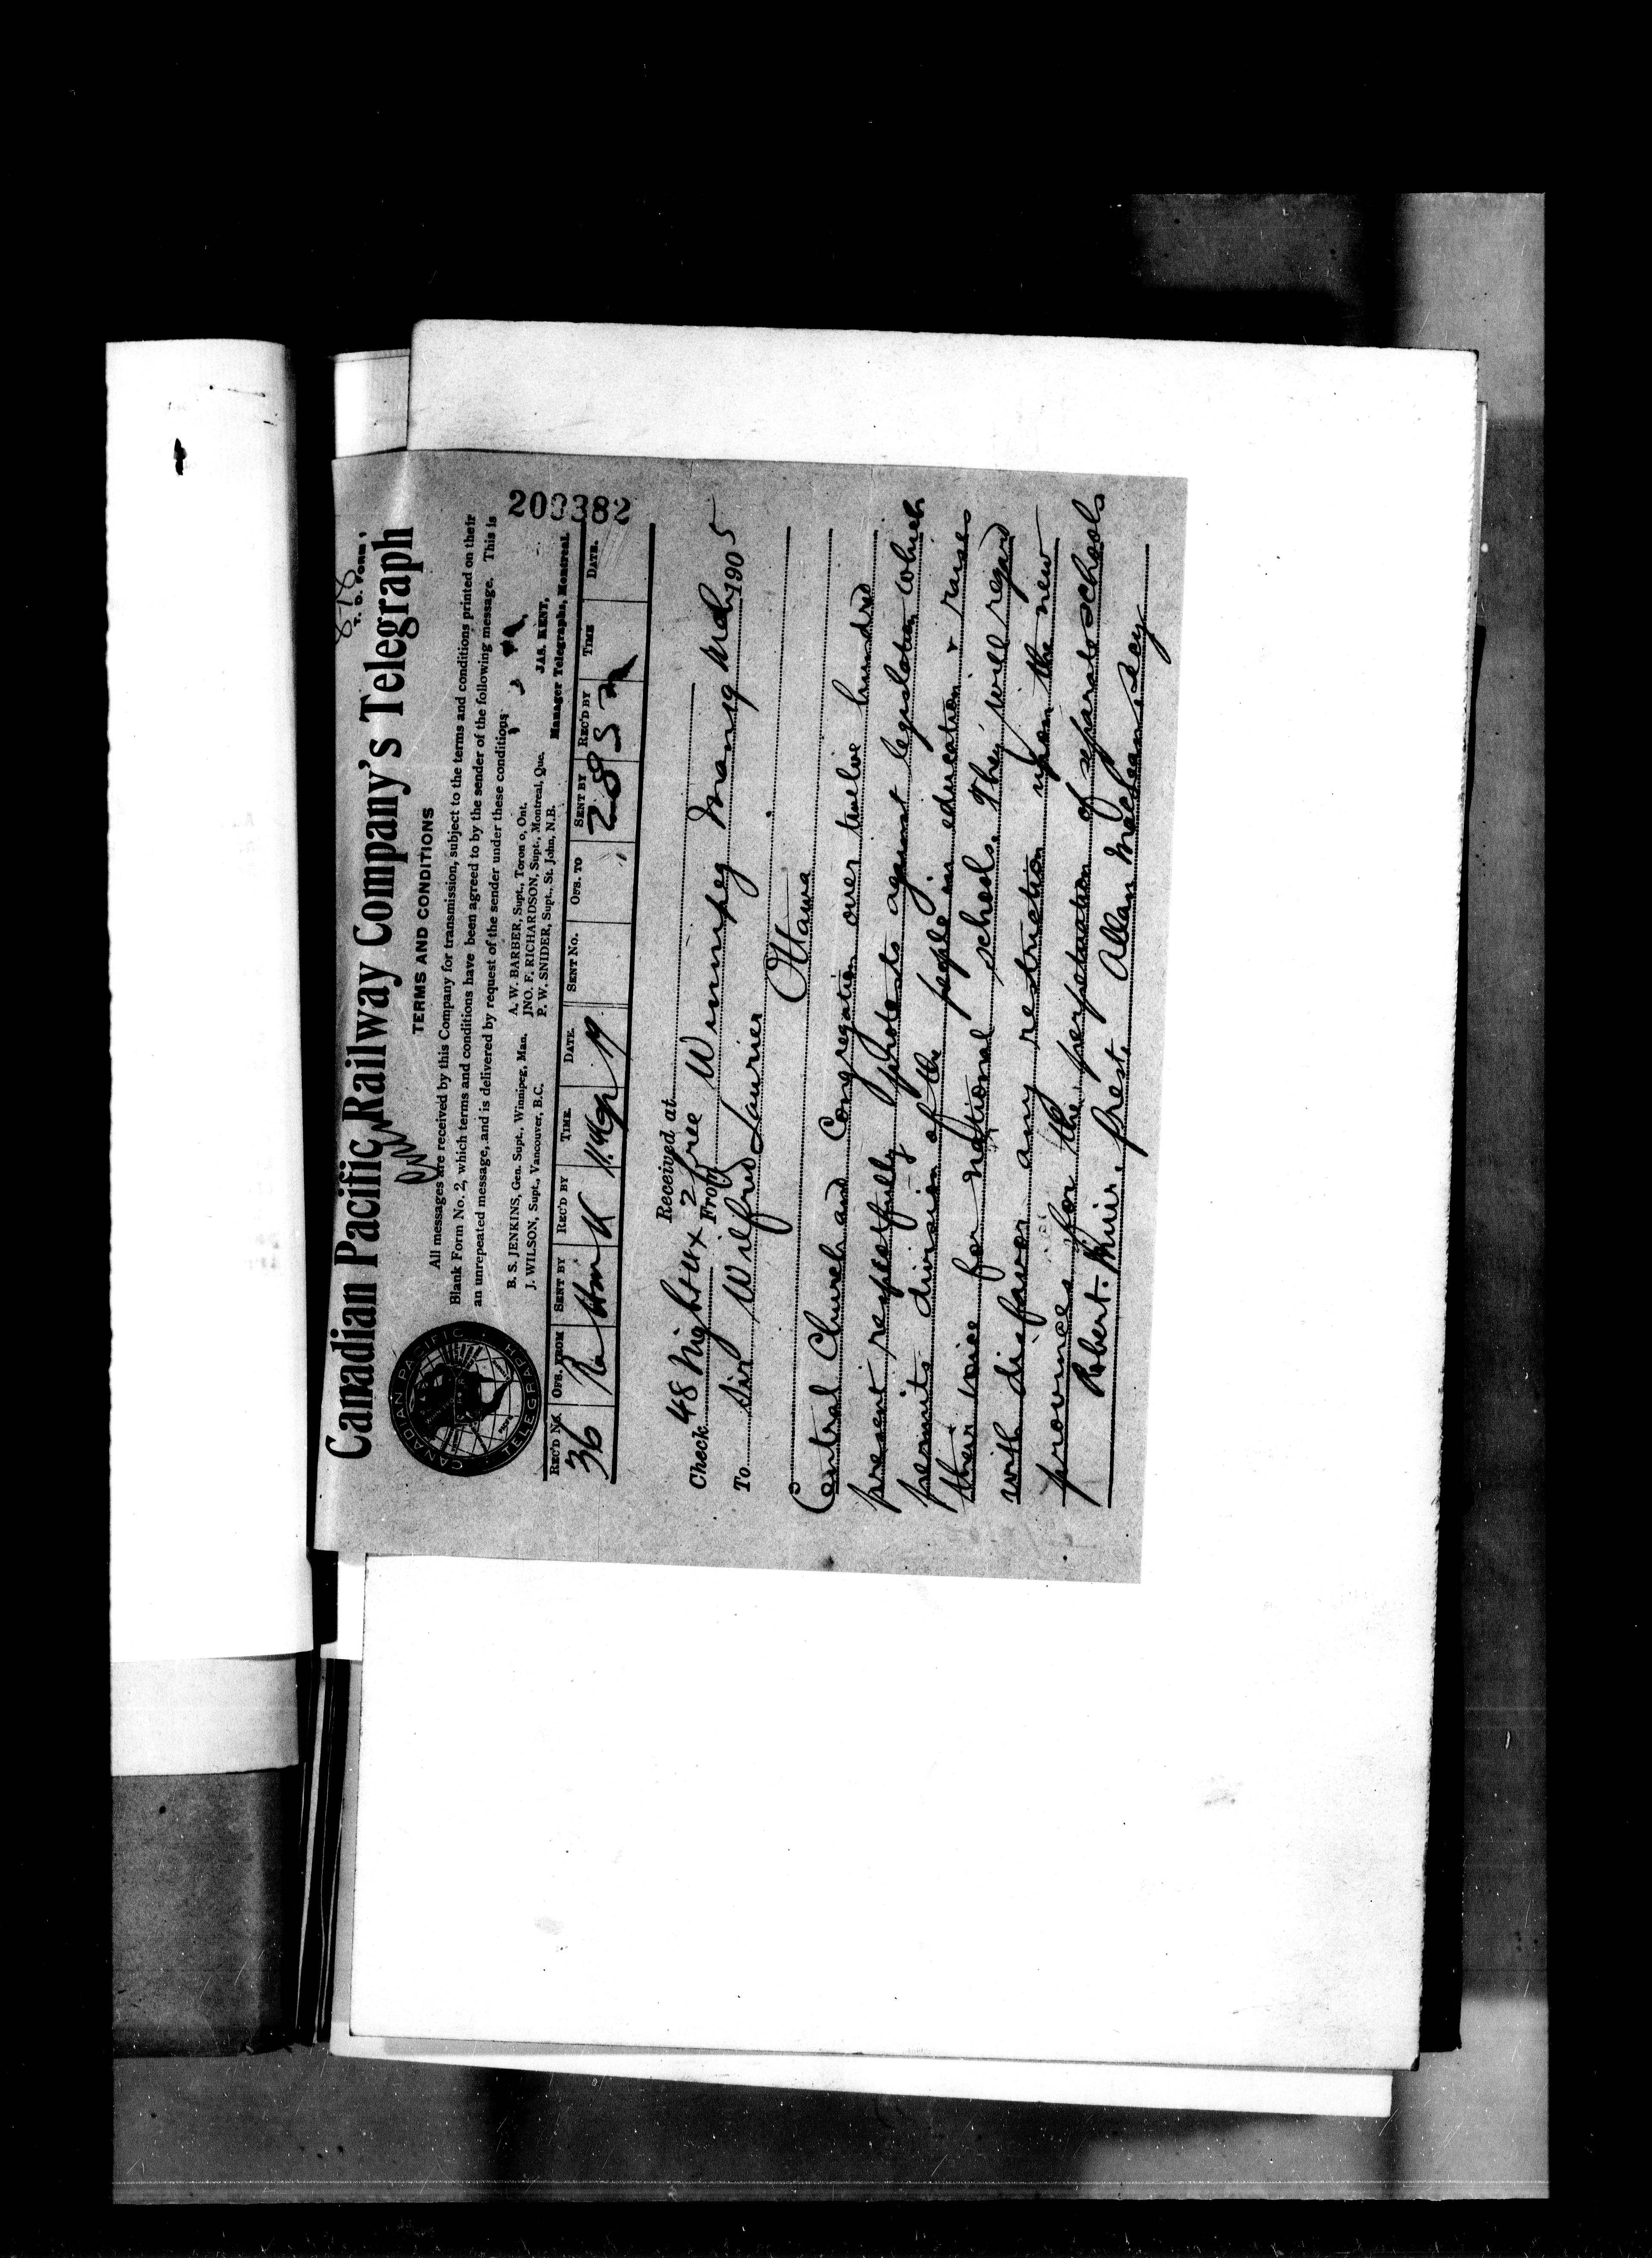 T. D. Form 1
Canadian Pacific Railway Company's Telegraph
TERMS AND CONDITIONS
All messages are received by this Company for transmission, subject to the terms and conditions printed on their
Blank Form No. 2, which terms and conditions have been agreed to by the sender of the following message. This is
an unrepeated message, and is delivered by request of the sender under these conditions
B. S. JENKINS, Gen. Supt., Winnipeg, Man.
J. WILSON, Supt., Vancouver, B.C.
A. W. BARBER, Supt., Toron o, Ont.
JNO. F. RICHARDSON, Supt., Montreal, Que.
P. W. SNIDER, Supt., St. John, N.B.
JAS. KENT,
Manager Telegraphs, Montreal.
CANADIAN PACIFIC TELEGRAPH
203382
REC'D No. OFS. FROM SENT BY REC'D BY TIME. DATE. SENT No. OFS. TO SENT BY REC'D BY TIME DATE.
36 19
Received at
Check 48 Night 2 free
From Winnipeg Man 19 Mch 1905
To Sir Wilfred Laurier
Ottawa
Central Church and Congregation over twelve hundred
present respectfully protests against legislation which
permits division of the people in education & raises
their voice for national schools. They will regard
with disfavor any restriction upon the new
provinces for the perpetuation of separate schools
Robert Muir prest. Allan McLean Secy